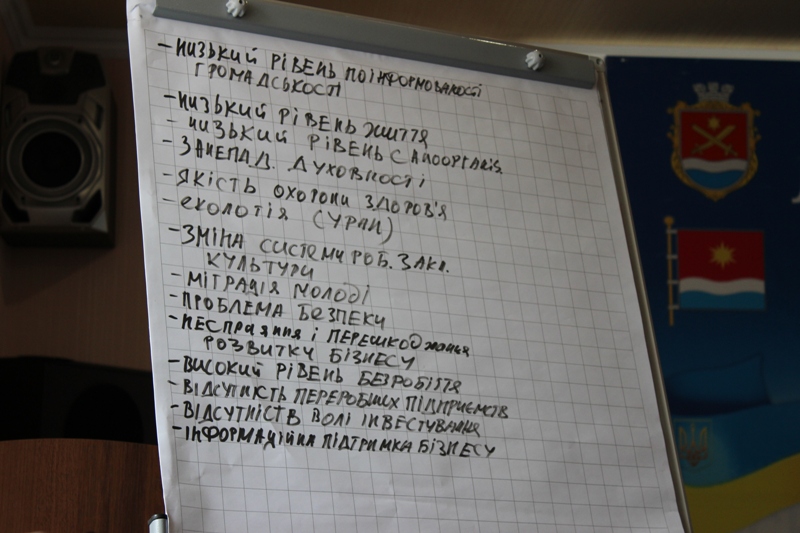 - НИЗЬКИЙ РІВЕНЬ ПОІНФОРМОВАНОСТІ
ГРОМАДСЬКОСТІ
- НИЗЬКИЙ РІВЕНЬ ЖИТТЯ
- НИЗЬКИЙ РІВЕНЬ САМООРГАНІЗ.
- ЗАНЕПАД. ДУХОВНОСТІ
- ЯКІСТЬ ОХОРОНИ ЗДОРОВ'Я
- ЕКОЛОГІЯ (УРАН)
- ЗМІНА СИСТЕМИ РОБ. ЗАКЛ.
КУЛЬТУРИ
- МІГРАЦІЯ МОЛОДІ
- ПРОБЛЕМА БЕЗПЕКИ
- НЕСПРИЯННЯ І ПЕРЕШКОДЖАННЯ
РОЗВИТКУ БІЗНЕСУ
- ВИСОКИЙ РІВЕНЬ БЕЗРОБІТТЯ
- ВІДСУТНІСТЬ ПЕРЕРОБНИХ ПІДПРИЄМСТВ
- ВІДСУТНІСТЬ ВОЛІ ІНВЕСТУВАННЯ
- ІНФОРМАЦІЙНА ПІДТРИМКА БІЗНЕСУ